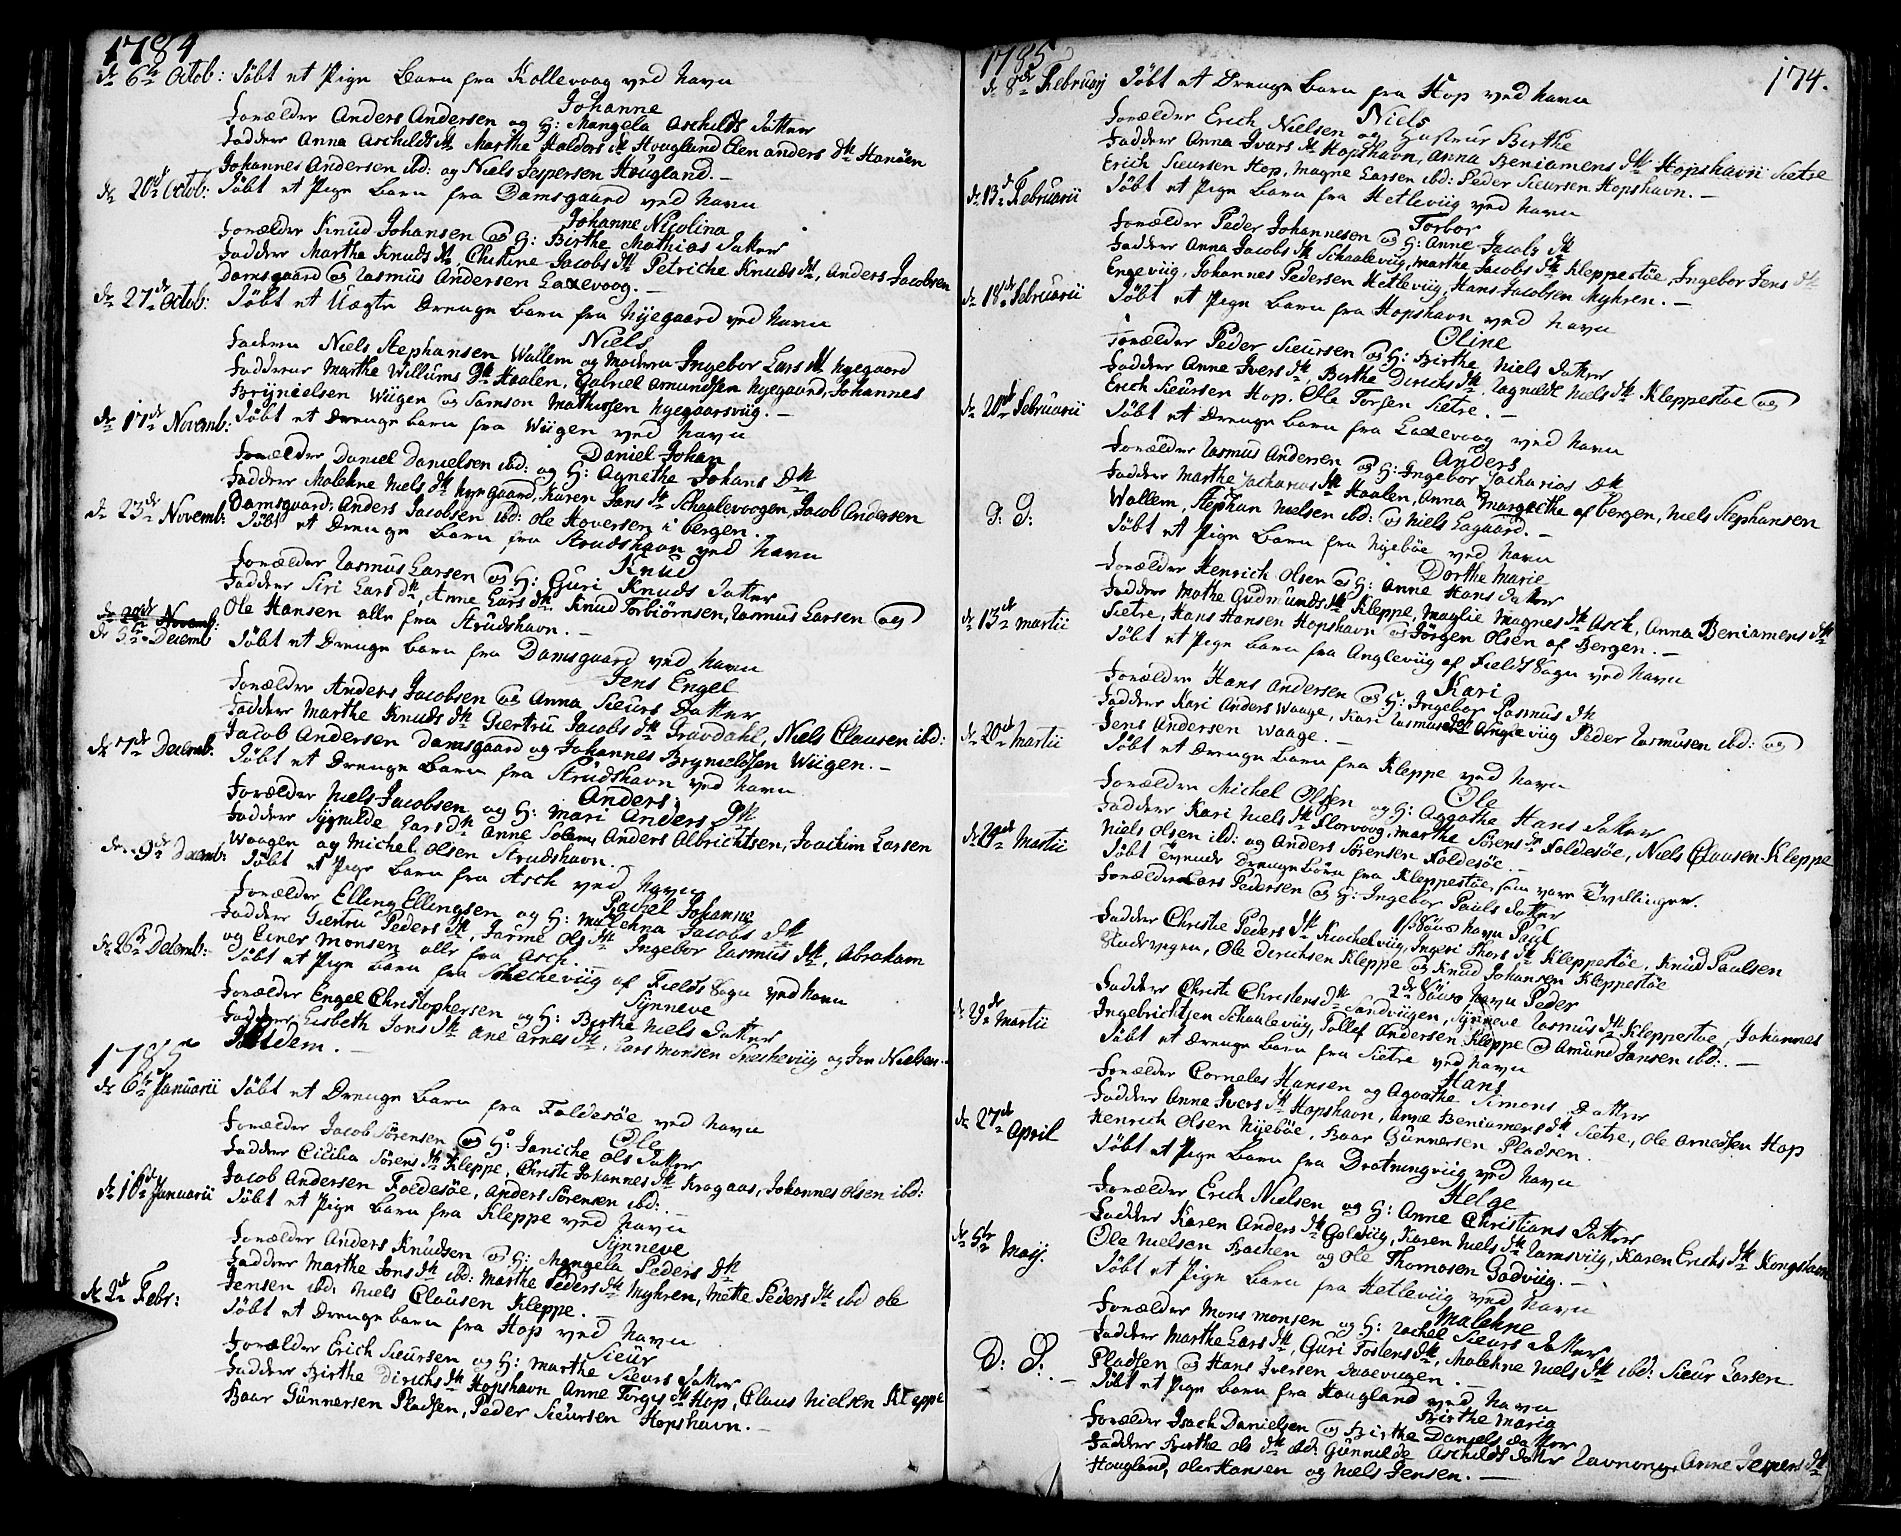 1784
d: 6te Octob: Døbt et Pige Barn fra Kollevoag ved Navn
Johanne
Forælder Anders Andersen og H: Mangela Aschilds Datter
Fadder Anna Aschilds Dtr Marthe Halders Dtr Hougland Elen anders Dtr Hanøen
Johannes Andersen ibd: og Niels Jespersen Hougland. –
d: 20de Octob: Døbt et Pige Barn fra Damsgaard ved Navn
Johanne Nicolina
Forælder Knud Johansen og H: Birthe Mathias Datter
Fadder Marthe Knuds Dtr, Christine Jacobs Dtr Petriche Knuds Dtr, Anders Jacobsen
Damsgaard og Rasmus Andersen Laxevoog. –
d: 27de Octob: Døbt et Uægte Drenge Barn fra Nyegaard ved Navn
Niels
Faderen Niels Stephansen Wallem og Moderen Ingebor Lars Dtr Nyegaard
Fadderne Marthe Willums Dtr Haalen, Gabriel Amundsen Nyegaard, Johannes
Brynielsen Wiigen og Samson Mathiesen Nyegaarsviig. –
d: 17de Novemb: Døbt et Drenge Barn fra Wiigen ved Navn
Daniel Johan
Forælder Daniel Danielsen ibd: og H: Agnethe Johans Dtr
Fadder Malehne Niels Dtr Nyegaard, Karen Jans Dtr Schaalevoogen, Jacob Andersen
Damsgaard, Anders Jacobsen ibd: Ole Hoversen i Bergen. –
d: 23de Novemb: Døbt et Drenge Barn fra Strudshavn ved Navn
Knud
Forælder Rasmus Larsen og H: Guri Knuds Datter
Fadder Siri Lars Dtr, Anne Lars Dtr Knud Torbiørnsen, Rasmus Larsen og
Ole Hansen alle fra Strudshavn. –
d: 5te Decemb: Døbt et Drenge Barn fra Damsgaard ved Navn
Jens Engel
Forælder Anders Jacobsen og Anna Sieurs Datter
Fadder Marthe Knuds Dtr Giertru Jacobs Dtr Gravdahl, Niels Clausen ibd:
Jacob Andersen Damsgaard og Johannes Bryneldsen Wiigen. –
d: 7de Decemb: Døbt et Drenge Barn fra Strudshavn ved Navn
Anders
Forælder Niels Jacobsen og H: Mari Anders Dtr
Fadder Sygnilde Lars Dtr Anne Anders Albrichtsen, Joachim Larsen
Waagen og Michel Olsen Strudshavn. –
d: 9de Decemb: Døbt et Pige Barn fra Asch ved Navn
Rachel Johanne
Forælder Elling Ellingsen og H: Malehna Jacobs Dtr
Fadder Giertru Peders Dtr, Ols Dtr Ingebor Rasmus Dtr, Abraham
og Einer Monsen alle fra Asch.
d: 26de Decemb: Døbt et Pige Barn fra Snecheviig af Fields Sogn ved Navn
Synneve
Forælder Engel Christophersen og H: Birthe Niels Datter
Fadder Lisbeth Jons Dtr Ane Arnes Dtr, Lars Monsen Snecheviig og Jon Nielsen
Ibidem. –
1785
d: 6te Januarii Døbt et Drenge Barn fra Foldesøe ved Navn
Ole
Forælder Jacob Sørensen og H: Janiche Ols Datter
Fadder Cicilia Sørens Dtr Kleppe, Christi Johannes Dtr Krogaas, Johannes Olsen ibd:
Jacob Andersen Foldesøe, Anders Sørensen ibd:
d: 16de Januarii Døbt et Pige Barn fra Kleppe ved Navn
Synneve
Forælder Anders Knudsen og H: Mangela Peders Dtr
Fadder Marthe Jons Dtr ibd: Marthe Peders Dtr Myhren, Mette Peders Dtr ibd Ole
Jensen ibd: Niels Clausen Kleppe. –
d: 2de Febr: Døbt et Drenge Barn fra Hop ved Navn
Sieur
Forælder Erich Sieursen og H: Marthe Sieurs Datter
Fadder Birthe Dirichs Dtr Hopshavn Anne Torges Dtr Hop, Claus Nielsen Kleppe
Baar Gunnersen Pladsen, Peder Sieursen Hopshavn. –
1785
174.
d: 8de Februarij Døbt et Drenge Barn fra Hop ved Navn
Niels
Forælder Erich Nielsen og Hustrue Birthe
Fadder Anna Ivars Dtr Hopshavn, Anna Beniamens Dtr Hopshavn Sætre
Erich Sieursen Hop, Magne Larsen ibd: Peder Sieursen Hopshavn. –
d: 13de Februarii Døbt et Pige Barn fra Hetleviig ved Navn
Torbor
Forælder Peder Johannesen og H: Anne Jacobs Dtr
Fadder Anna Jacobs Dtr Schaaleviig, Marthe Jacobs Dtr Kleppestøe, Ingebor Jens Dtr
Engeviig, Johannes Pedersen Hetleviig, Hans Jacobsen Myhren. –
d: 18de Februarii Døbt et Pige Barn fra Hopshavn ved Navn
Oline
Forælder Peder Sieursen og H: Birthe Niels Datter
Fadder Anne Ivers Dtr Birthe Dirichs Dtr Ragnilde Niels Dtr Kleppestøe og
Erich Sieursen Hop, Ole Torsen Sætre. –
d: 20de Februarii Døbt et Drenge Barn fra Laxevoog ved Navn
Anders
Forælder Rasmus Andersen og H: Ingebor Zacharias Dtr
Fadder Marthe Zacharias Dtr Haalen, Anna Margrethe af Bergen, Niels Stephansen
Wallem, Stephan Nielsen ibd: og Niels Lagaard. –
D: D: Døbt et Pige Barn fra Nyebøe ved Navn
Dorthe Marie
Forælder Henrich Olsen og H: Anne Hans Datter
Fadder Mathe Gudmunds Dtr Kleppe, Maglie Magnes Dtr Asch, Anna Beniamens Dtr
Sætre, Hans Hansen Hopshavn og Jørgen Olsen af Bergen. –
d: 13de Martii Døbt et Pige Barn fra Angleviig af Fields Sogn ved Navn
Kari
Forælder Hans Andersen og H: Ingebor Rasmus Dtr
Fadder Kari Anders Waage, Kari Rasmus Dtr Angleviig Peder Rasmusen ibd: og
Jens Andersen Waage. –
d: 20de Martii Døbt et Drenge Barn fra Kleppe ved Navn
Ole
Forælder Michel Olsen og H: Aggathe Hans Datter
Fadder Kari Niels Dtr Florvoog, Marthe Sørens Dtr Foldesøe, Niels Clausen Kleppe
Niels Olsen ibd: og Anders Sørensen Foldesøe. –
d: Martii Døbt Tvende Drenge Børn fra Kleppestøe, som vare Tvillinger.
Forælder Lars Pedersen og H: Ingebor Pauls Datter
1ste Søns Navn Paul
Fadder Christie Peders Dtr Knacheviig, Ingeri Thors Dtr Kleppestøe, Knud Paulsen
Ole Derichsen Kleppe og Knud Johansen Kleppestøe
2de Søns Navn Peder
Fadder Christi Christens Dtr Sandviigen, Synneve Rasmus Dtr Kleppestøe, Johannes
Ingebrichtsen Schaaleviig, Tollef Andersen Kleppe og Amund Jansen ibd: –
d: 29de Martii Døbt et Drenge Barn fra Sætre ved Navn
Hans
Forælder Corneles Hansen og Agoathe Simons Datter
Fadder Anne Ivers Dtr Hopshavn, Anne Beniamens Dtr Sætre, Ole Arnedsen Hop
Henrich Olsen Nyebøe, Baar Gunnersen Pladsen.
d: 27de April Døbt et Pige Barn fra Drotningviig ved Navn
Helge
Forælder Erich Nielsen og H: Anne Christians Datter
Fadder Karen Anders Dtr Godviig, Karen Niels Dtr Ramsviig, Karen Erichs Dtr Kongshavn
Ole Nielsen Bachen og Ole Thomasen Godviig. –
d: 5te Maij. Døbt et Pige Barn fra Hetleviig ved Navn
Malehne
Forælder Mons Monsen og H: Rachel Sieurs Datter
Fadder Marthe Lars Dtr, Guri Tostens Dtr, Malehne Niels Dtr ibd: Sieur Larsen
Pladsen og Hans Iversen
D: D: Døbt et Pige Barn fra Hougland ved Navn
Birthe Maria
Forælder Isach Danielsen og Birthe Daniels datter
Fadder Birthe Ols Dtr ibd: Gunnilde Aschilds datter Ravnang, Anne Jespers Dtr
Hougland, Ole Hansen og Niels Jensen. –